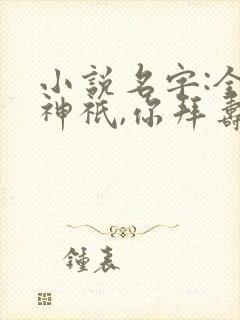 小說名字:全
神祇,你拜壽
鍾表